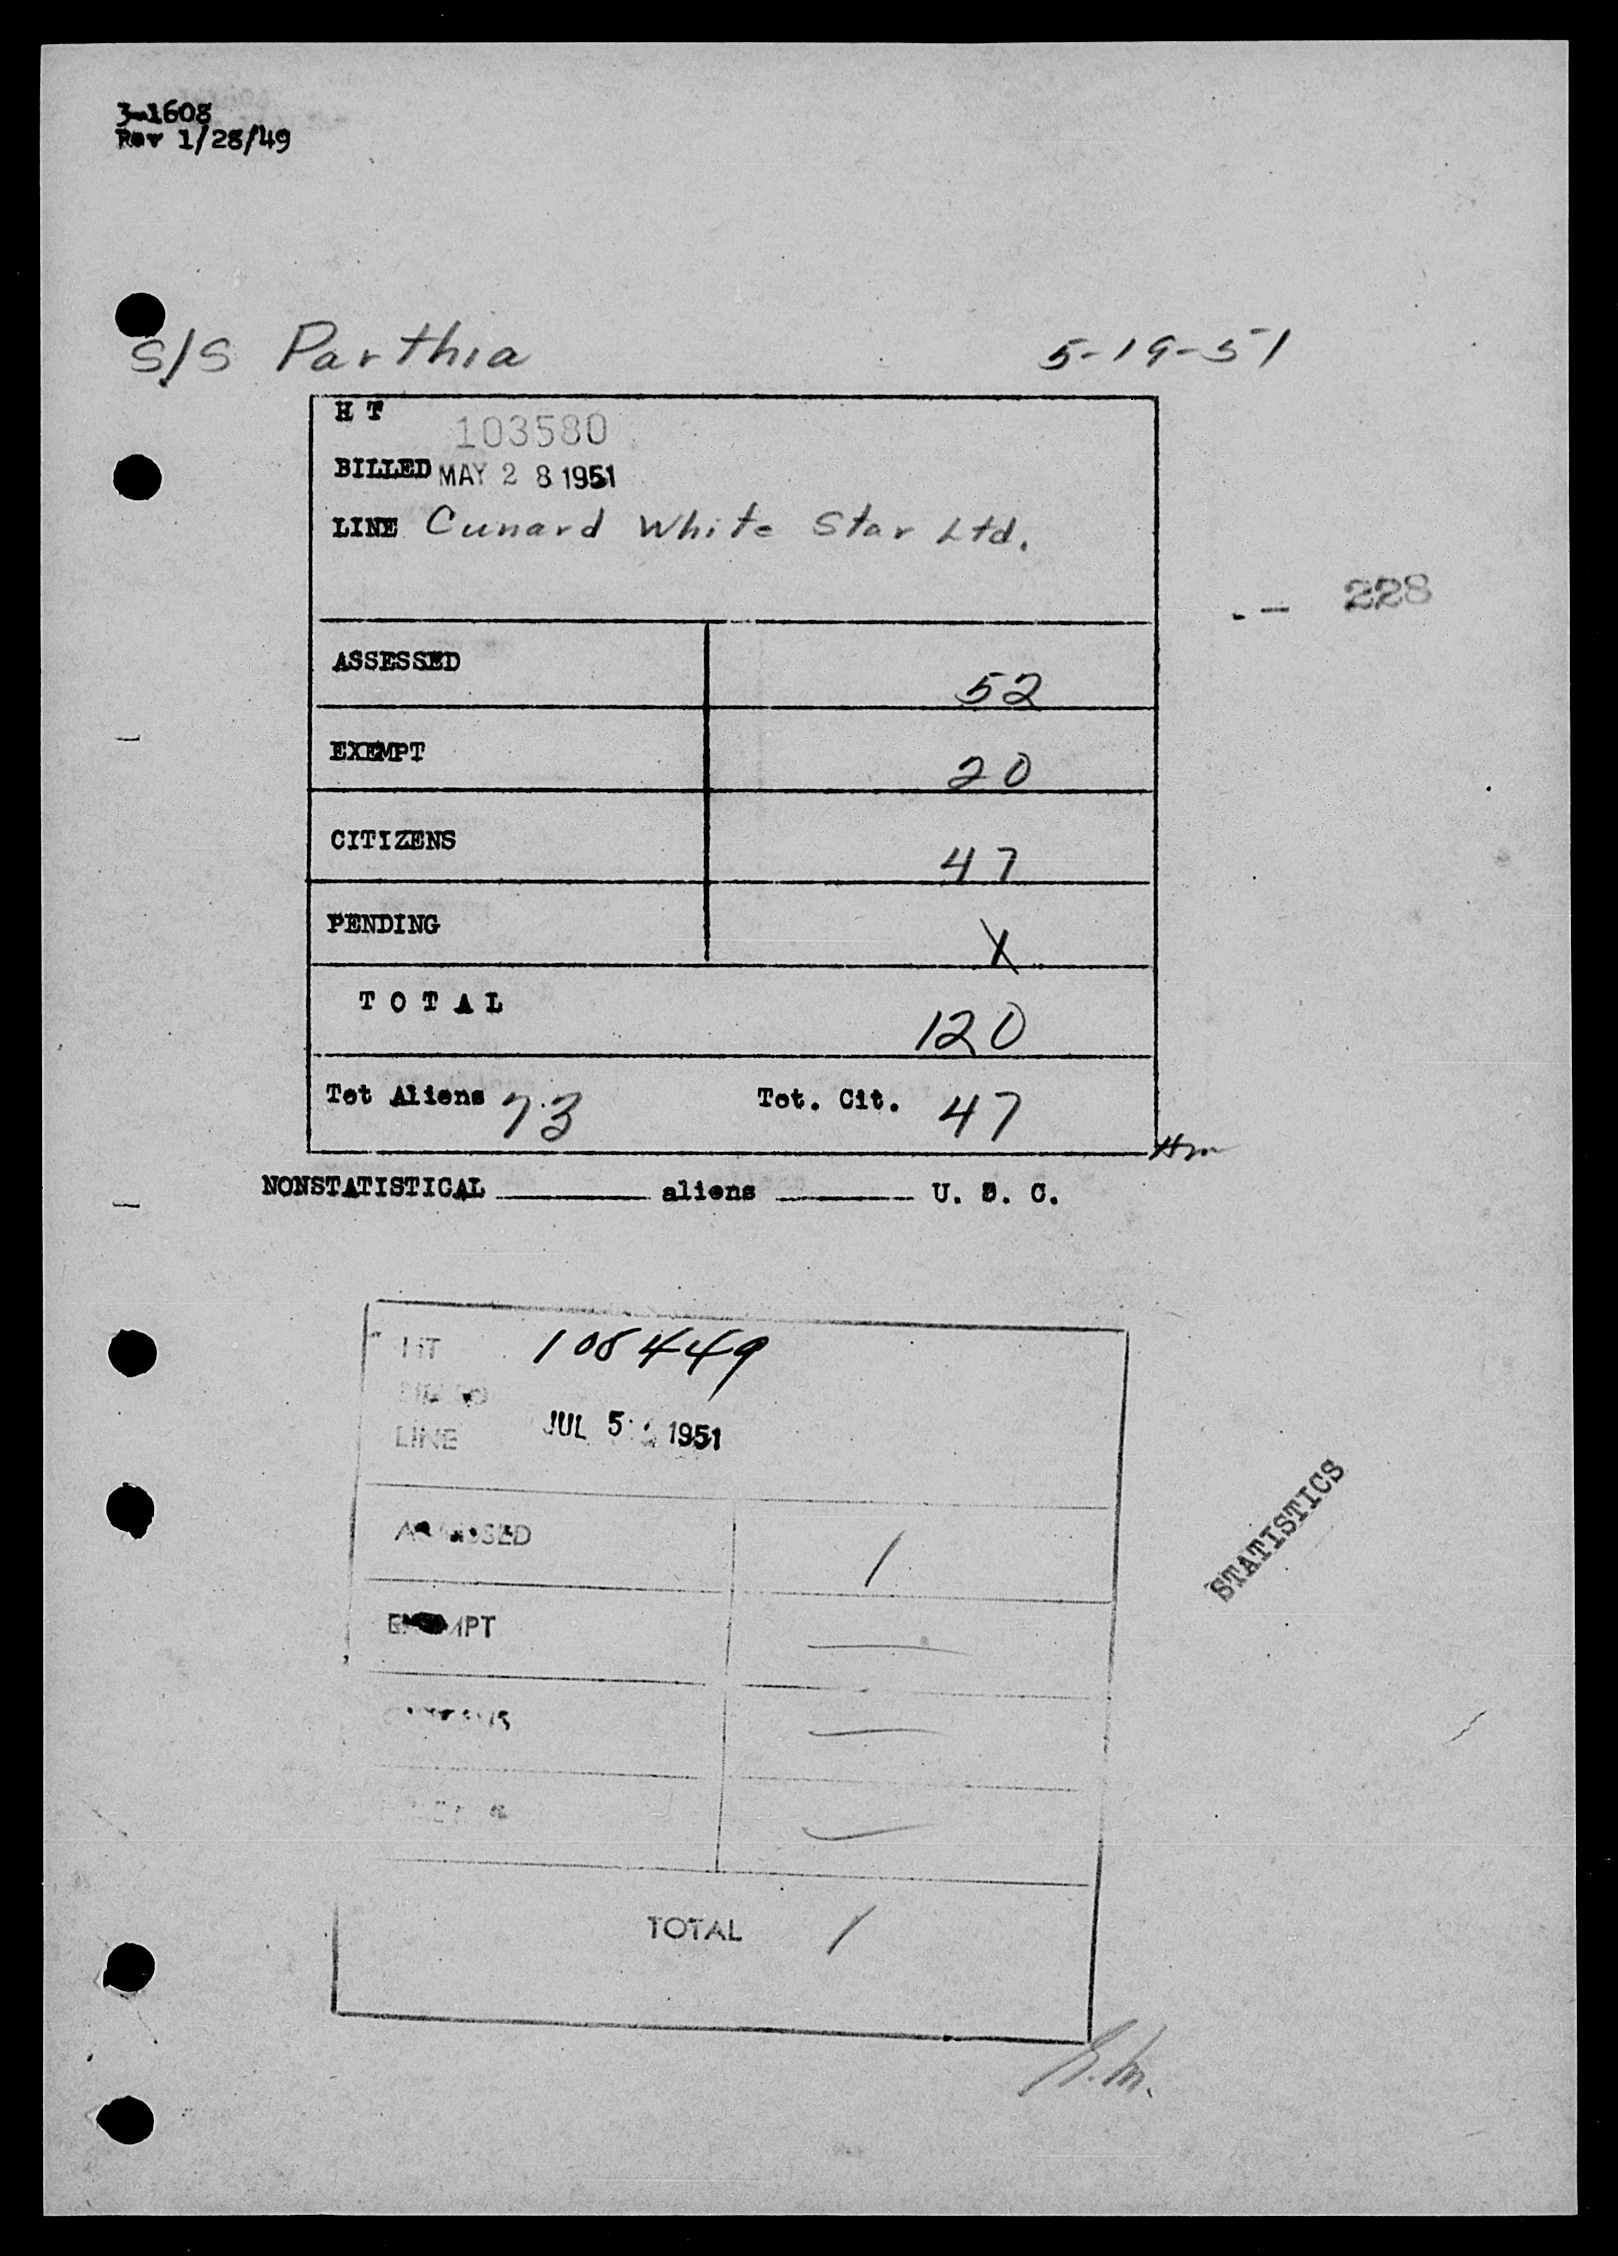 3-1608
Rev 1/28/49
S/S Parthia 5-19-51
H T 103580
BILLED MAY 28 1951
LINE Cunard White Star Ltd.
228
ASSESSED 52
EXEMPT 20
CITIZENS 47
PENDING X
TOTAL 120
Tot Aliens 73 Tot. Cit. 47
Hm
NONSTATISTICAL ______ aliens ______ U. S. C.
HT 108449
LINE JUL 5 1951
STATISTICS
ASSESSED 1
EXEMPT —
—
—
TOTAL 1